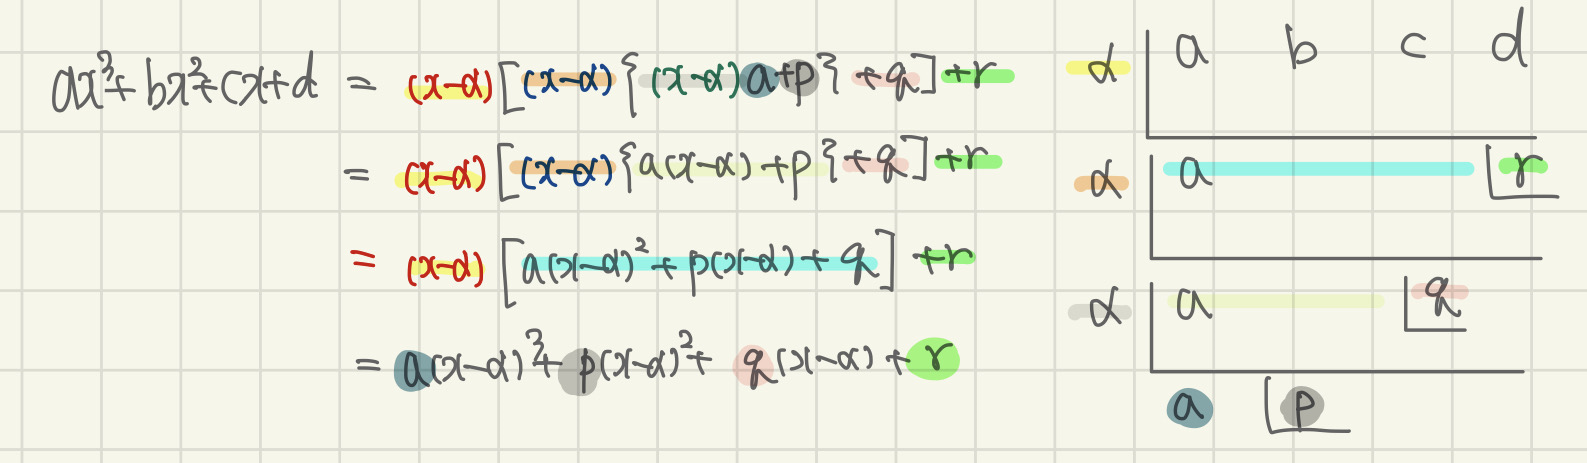 ax³+bx²+cx+d = (x-α)[(x-α){(x-α)a+p}+q]+r
= (x-α)[(x-α){a(x-α)+p}+q]+r
= (x-α)[a(x-α)²+p(x-α)+q]+r
= a(x-α)³+p(x-α)²+q(x-α)+r
α a b c d
α a r
α a q
a p